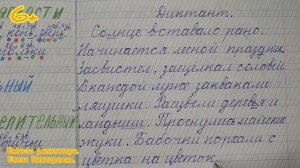 6+
ЯГКОСТИ
конь, зверь
ЬНЫЙ
ЕЛИТЕЛЬНЫЙ
Диктант.
Солнце вставало рано.
Начинается лесной праздник.
Засвистел, защёлкал соловей.
В каждой луже заквакали
лягушки. Зацвели деревья и
ландыши. Проснулись майские
жуки. Бабочки порхали с
цветка на цветок.